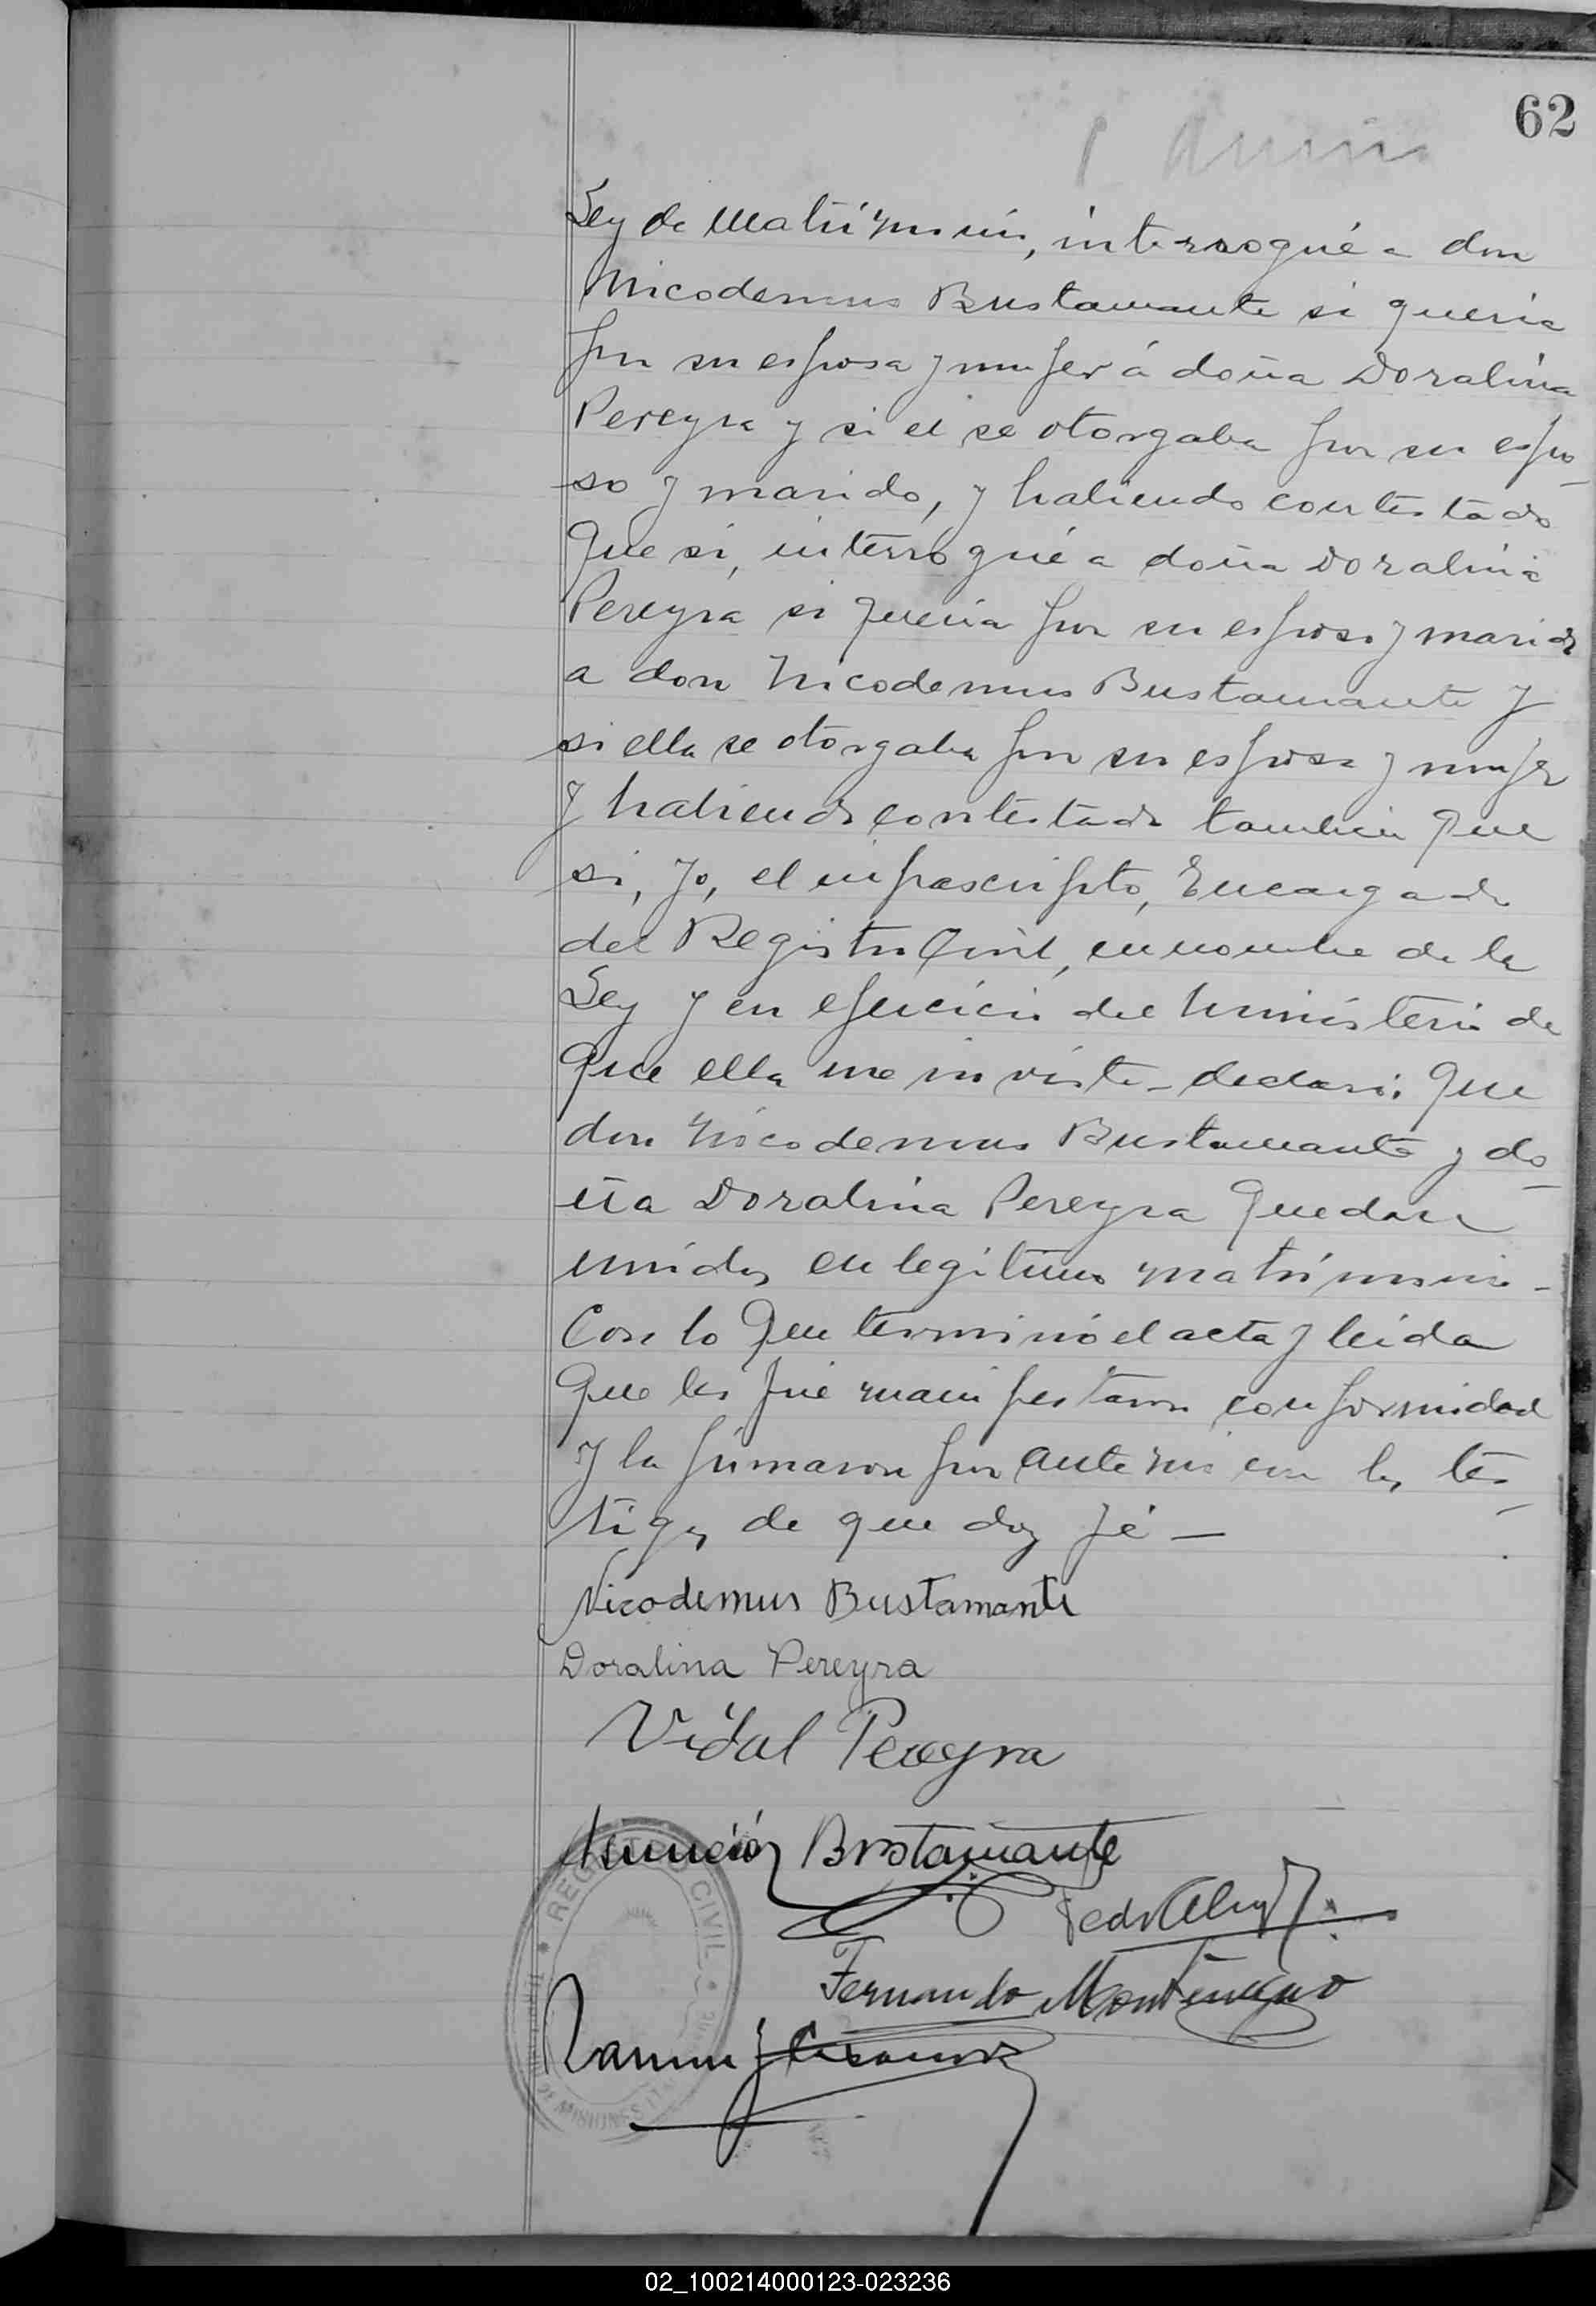 62
Ley de Matrimonio, interrogué a don
Nicodemus Bustamante si queria
por su esposa y mujer á doña Doralina
Pereyra y si el se otorgaba por su espo-
so y marido, y habiendo contestado
que si, interrogué a doña Doralina
Pereyra si queria por su esposo y marido
a don Nicodemus Bustamante y
si ella se otorgaba por su esposa y mujer
y habiendo contestado tambien que
si, yo, el infrascripto, Encargado
del Registro Civil, en nombre de la
Ley y en ejercicio del ministerio de
que ella me inviste - declaro: que
don Nicodemus Bustamante y do-
ña Doralina Pereyra quedan
unidos en legitimo matrimonio -
Con lo que terminó el acta y leida
que les fué manifestaron conformidad
y la firmaron por ante mi con los tes-
tigos de que doy fé -
Nicodemus Bustamante
Doralina Pereyra
Vidal Pereyra
Asunción Bustamante
Fernando Montenegro
Ramon J
REGISTRO CIVIL
DE MISIONES
02_100214000123-023236